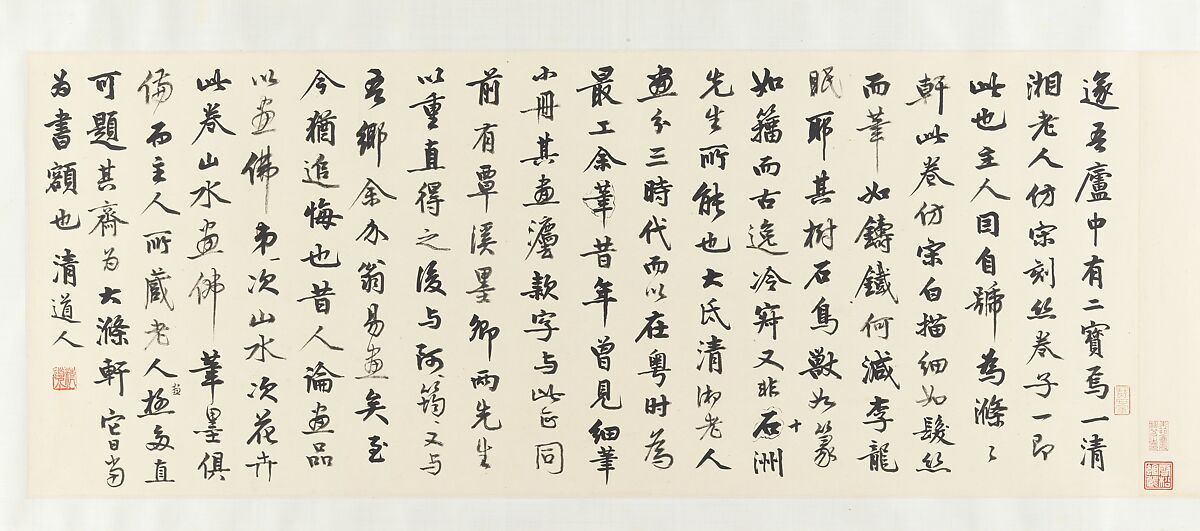 遂吾廬中有二寶焉一清
湘老人仿宋刻丝卷子一即
此也主人因自號為滌〻
軒此卷仿宋白描细如髮丝
而筆如鑄鐵何減李龍
眠耶其樹石鳥獸如篆
如籀而古逸冷 又非石洲
先生所能也大氐清湘老人
畫分三時代而以在粤时為
最工余筆昔年曾見细筆
小冊其畫灋款字与此正同
前有覃溪墨卿兩先生
以重直得之後与阿筠〻又与
吾鄉余亦翁易畫矣至
今猶追悔也昔人論畫品
以畫佛弟一次山水次花卉
此卷山水畫佛筆墨俱
備而主人所藏老人畫極多直
可題其齊為大滌軒它日當
为書額也 清道人